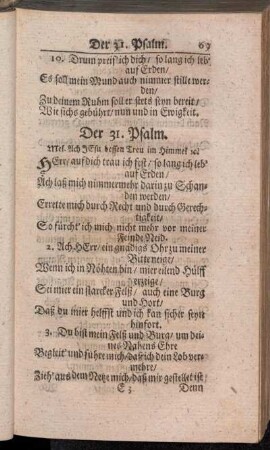 Der 31. Psalm. 69
10. Drum preiß' ich dich/ so lang ich leb'
auf Erden/
Es soll mein Mund auch nimmer stille wer-
den/
Zu deinem Ruhm soll er stets seyn bereit/
Wie sichs gebührt/ nun und in Ewigkeit.
Der 31. Psalm.
Mel. Ach JEsu dessen Treu im Himmel ꝛc.
HErr/ auf dich trau ich fest/ so lang ich leb'
auf Erden/
Ach laß mich nimmermehr darin zu Schan-
den werden/
Errette mich durch Recht und durch Gerech-
tigkeit/
So fürcht' ich mich nicht mehr vor meiner
Feinde Neid.
2. Ach HErr/ ein gnädigs Ohr zu meiner
Bitte neige/
Wenn ich in Nöhten bin/ mir eilend Hülff
erzeige/
Sei mir ein starcker Felß/ auch eine Burg
und Hort/
Daß du mier helffst und ich kan sicher seyn
hinfort.
3. Du bist mein Felß und Burg/ um dei-
nes Nahens Ehre
Begleit' und führe mich/ daß ich dein Lob ver-
mehre/
Zieh' aus dem Netze mich/ daß mir gestellet ist/
E 3 Denn